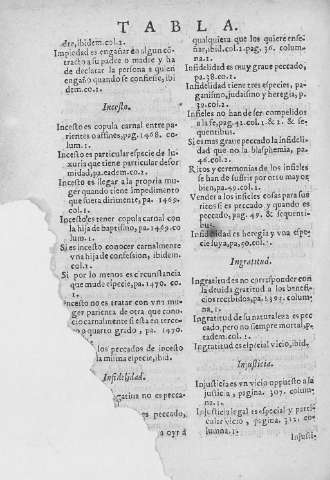 TABLA.
dre, ibidem.col.2.
Impiedad es engañar en algun cõ-
tracto a su padre o madre y ha
de declarar la persona a quien
engaño quando se confiesse, ibi
dem.co.1.
Incesto.
Incesto es copula carnal entre pa-
rientes o affines, pag.1468. co-
lum.1.
Incesto es particular especie de lu-
xuria que tiene particular desor
midad, pa.eadem.co.1.
Incesto es llegar a la propria mu-
ger quando tiene impedimento
que fuera dirimente, pa. 1469.
col.1.
Incesto es tener copula carnal con
la hija de baptismo, pa.1469.co
lum.1.
Si es incesto conocer carnalmente
vna hija de confession, ibidem
col.1.
Si por lo menos es circunstancia
que mude especie, pa.1470. co.
1.
Incesto no es tratar con vna mu-
ger parienta de otra que cono-
cio carnalmente si esta en terce-
ro o quarto grado, pa. 1470.
los peccados de incesto
la misma especie, ibid.
Infidelidad.
negatiua no es pecca-
es peccado,
a oyr a
qualquiera que los quiere ense-
ñar, ibid.col.1.pag.36. colum-
na.1.
Infidelidad es muy graue peccado,
pa.38.co.1.
Infidelidad tiene tres especies, pa-
ganismo, judaismo y heregia, p.
39.col.2.
Infieles no han de ser compelidos
a la fe, pag.41.col.1. & 1. & se-
quentibus.
Si es mas graue peccado la infideli-
dad que no la blasphemia, pa-
46.col.2.
Ritos y ceremonias de los infieles
se han de suffrir por otro mayor
bien, pa.49.col.1.
Vender a los infieles cosas para sus
ritos si es peccado y quando es
peccado, pag. 49. & sequenti-
bus.
Infidelidad es heregia y vna espe-
cie suya, pa.50.col.1.
Ingratitud.
Ingratitud es no corresponder con
la deuida gratitud a los benefi-
cios recibidos, pa.391. colum-
na.1.
Ingratitud de su naturaleza es pec
cado, pero no siempre mortal, p.
eadem.col.1.
Ingratitud es especial vicio, ibid.
Injusticia.
Injusticia es vn vicio oppuesto a la
justicia, pagina. 307. colum-
na.1.
Injusticia legal es especial y parti-
cular vicio, pagina. 312. co-
lumna.1.
Injusti-